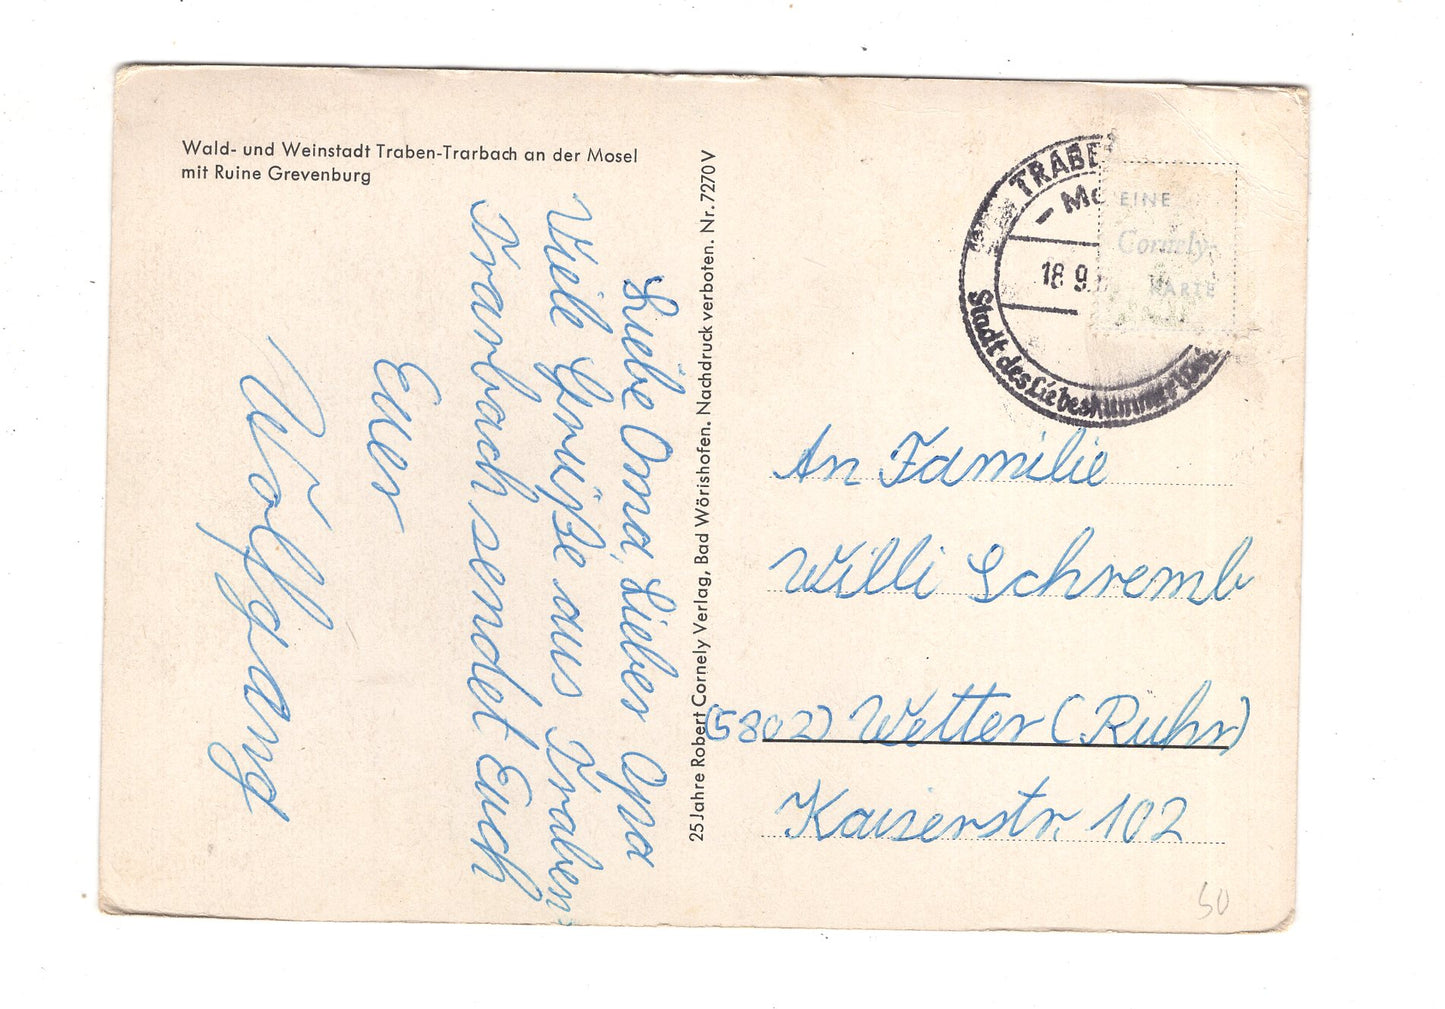 Wald- und Weinstadt Traben-Trarbach an der Mosel
mit Ruine Grevenburg
Liebe Oma, Lieber Opa
Viele Grüße aus Traben-
Trarbach sendet Euch
Euer
Wolfgang
25 Jahre Robert Cornely Verlag, Bad Wörishofen. Nachdruck verboten. Nr. 7270 V
TRABE
- Mo
18 9.
Stadt des Liebeskummer
EINE
Cornely-
KARTE
An Familie
Willi Schremb
(5802) Wetter (Ruhr)
Kaiserstr. 102
50